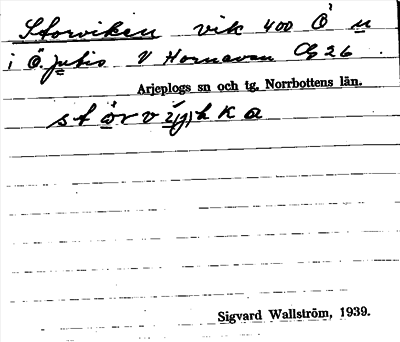 Storviken vik 400 Ö n
i Ö. Jutis V Hornavan Cg 26.
Arjeplogs sn och tg. Norrbottens län.
Sigvard Wallström, 1939.